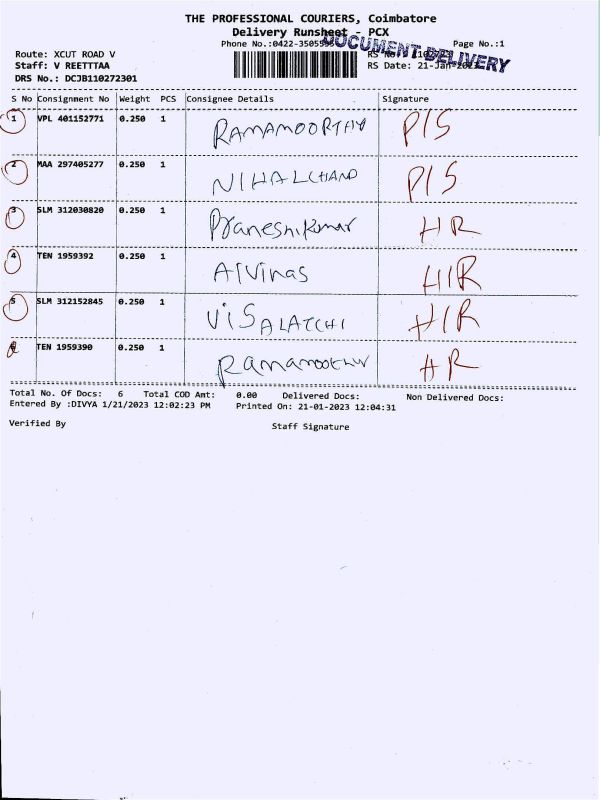 THE PROFESSIONAL COURIERS, Coimbatore
Delivery Runsheet - PCX
Phone No.:0422-3505595 Page No.:1
DOCUMENT DELIVERY
Route: XCUT ROAD V RS No.:
Staff: V REETTTAA RS Date: 21-Jan-2023
DRS No.: DCJB110272301
S No Consignment No Weight PCS Consignee Details Signature
1 VPL 401152771 0.250 1 RAMAMOORTHY P/S
2 MAA 297405277 0.250 1 NIHALCHAND P/S
3 SLM 312030820 0.250 1 Praneshkumar HR
4 TEN 1959392 0.250 1 AIVinas H/R
5 SLM 312152845 0.250 1 ViSALATCHI H/R
6 TEN 1959390 0.250 1 HR
Total No. Of Docs: 6 Total COD Amt: 0.00 Delivered Docs: Non Delivered Docs:
Entered By :DIVYA 1/21/2023 12:02:23 PM Printed On: 21-01-2023 12:04:31
Verified By Staff Signature